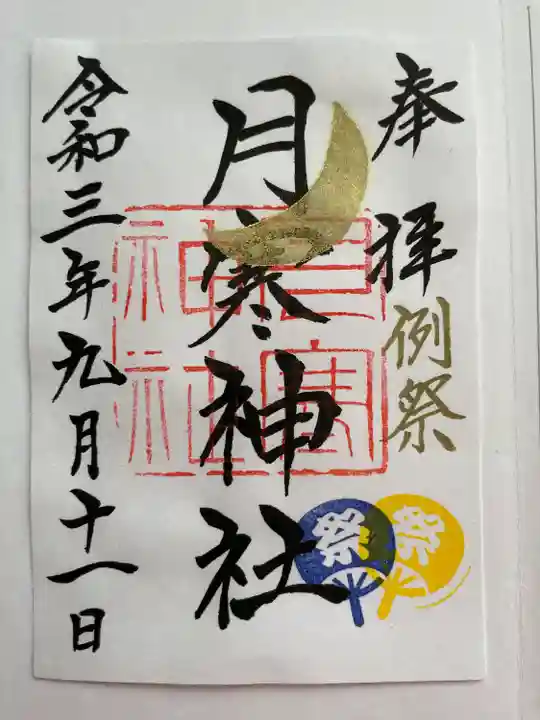 奉拝
例祭
月寒神社
月寒神社
祭
祭
令和三年九月十一日